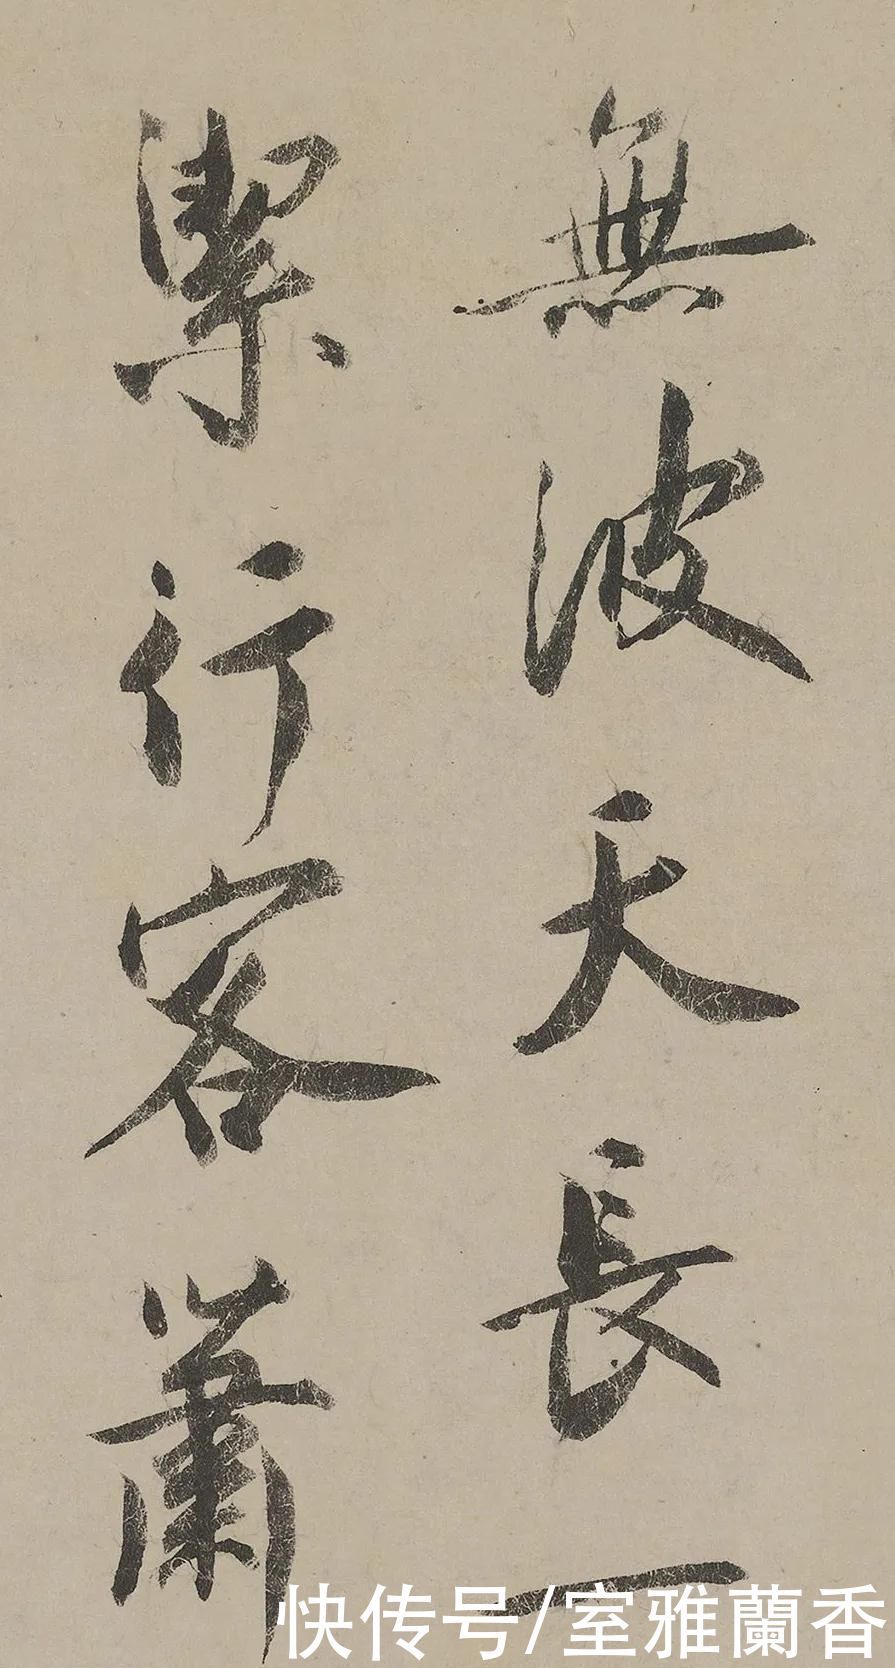 無波天長一
潔行客蕭
快传号/室雅蘭香